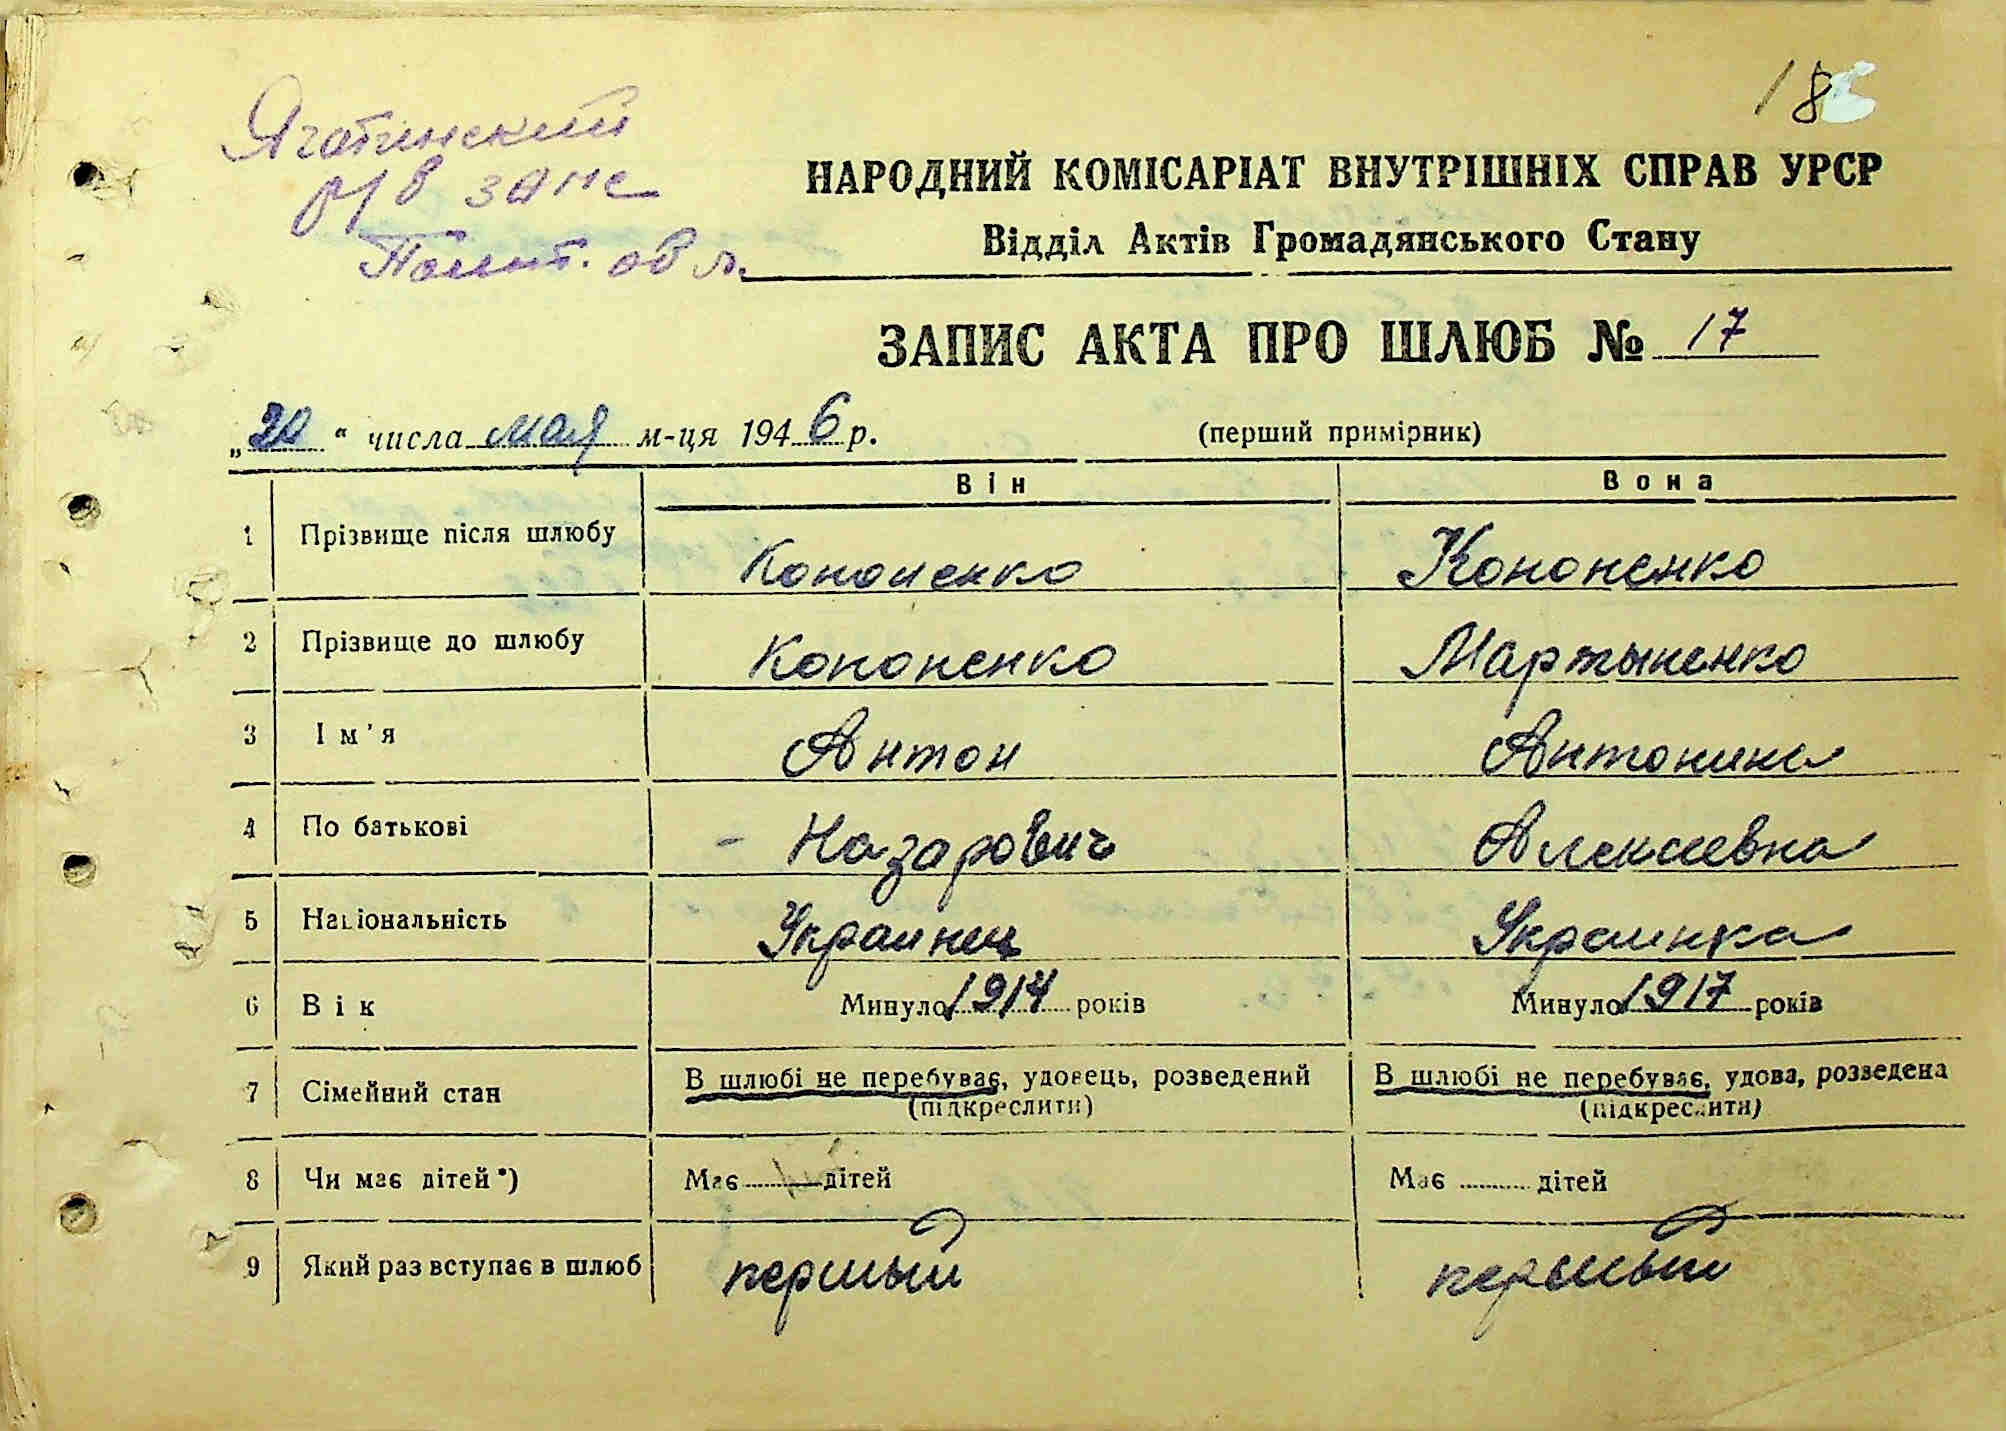 18
Яготинский
р/в ЗАГС
Полт. обл.
НАРОДНИЙ КОМІСАРІАТ ВНУТРІШНІХ СПРАВ УРСР
Відділ Актів Громадянського Стану
ЗАПИС АКТА ПРО ШЛЮБ № 17
„20“ числа мая м-ця 1946 р. (перший примірник)
Він Вона
1 Прізвище після шлюбу Кононенко Кононенко
2 Прізвище до шлюбу Кононенко Мартыненко
3 Ім'я Антон Антонина
4 По батькові - Назарович Алексеевна
5 Національність Украинец Украинка
6 Вік Минуло 1914 років Минуло 1917 років
7 Сімейний стан В шлюбі не перебуває, удовець, розведений В шлюбі не перебуває, удова, розведена
(підкреслити) (підкреслити)
8 Чи має дітей*) Має дітей Має дітей
9 Який раз вступає в шлюб первый первый